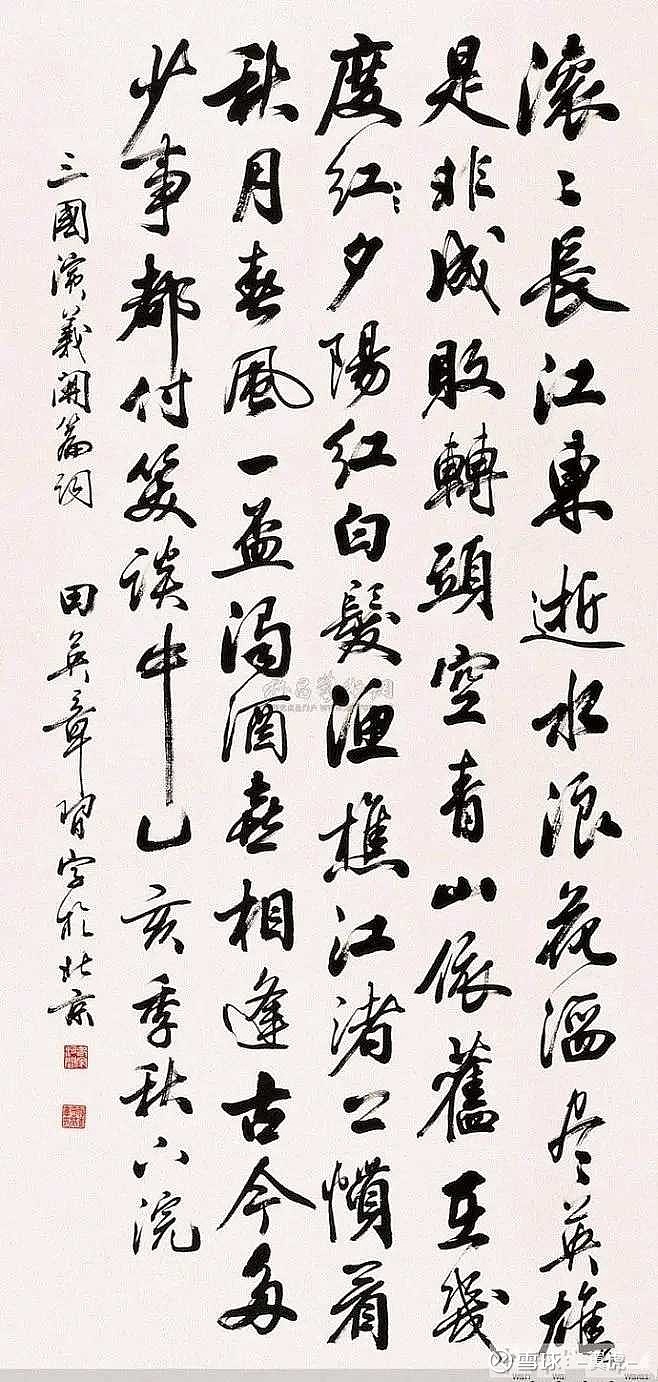 滚〻長江東逝水浪花淘尽英雄
是非成敗轉頭空青山依舊在幾
度红〻夕陽红白髮漁樵江渚上慣看
秋月春風一壺濁酒喜相逢古今多
少事都付笑談中乙亥季秋下浣
三國演義開篇詞 田英章習字於北京
雪球